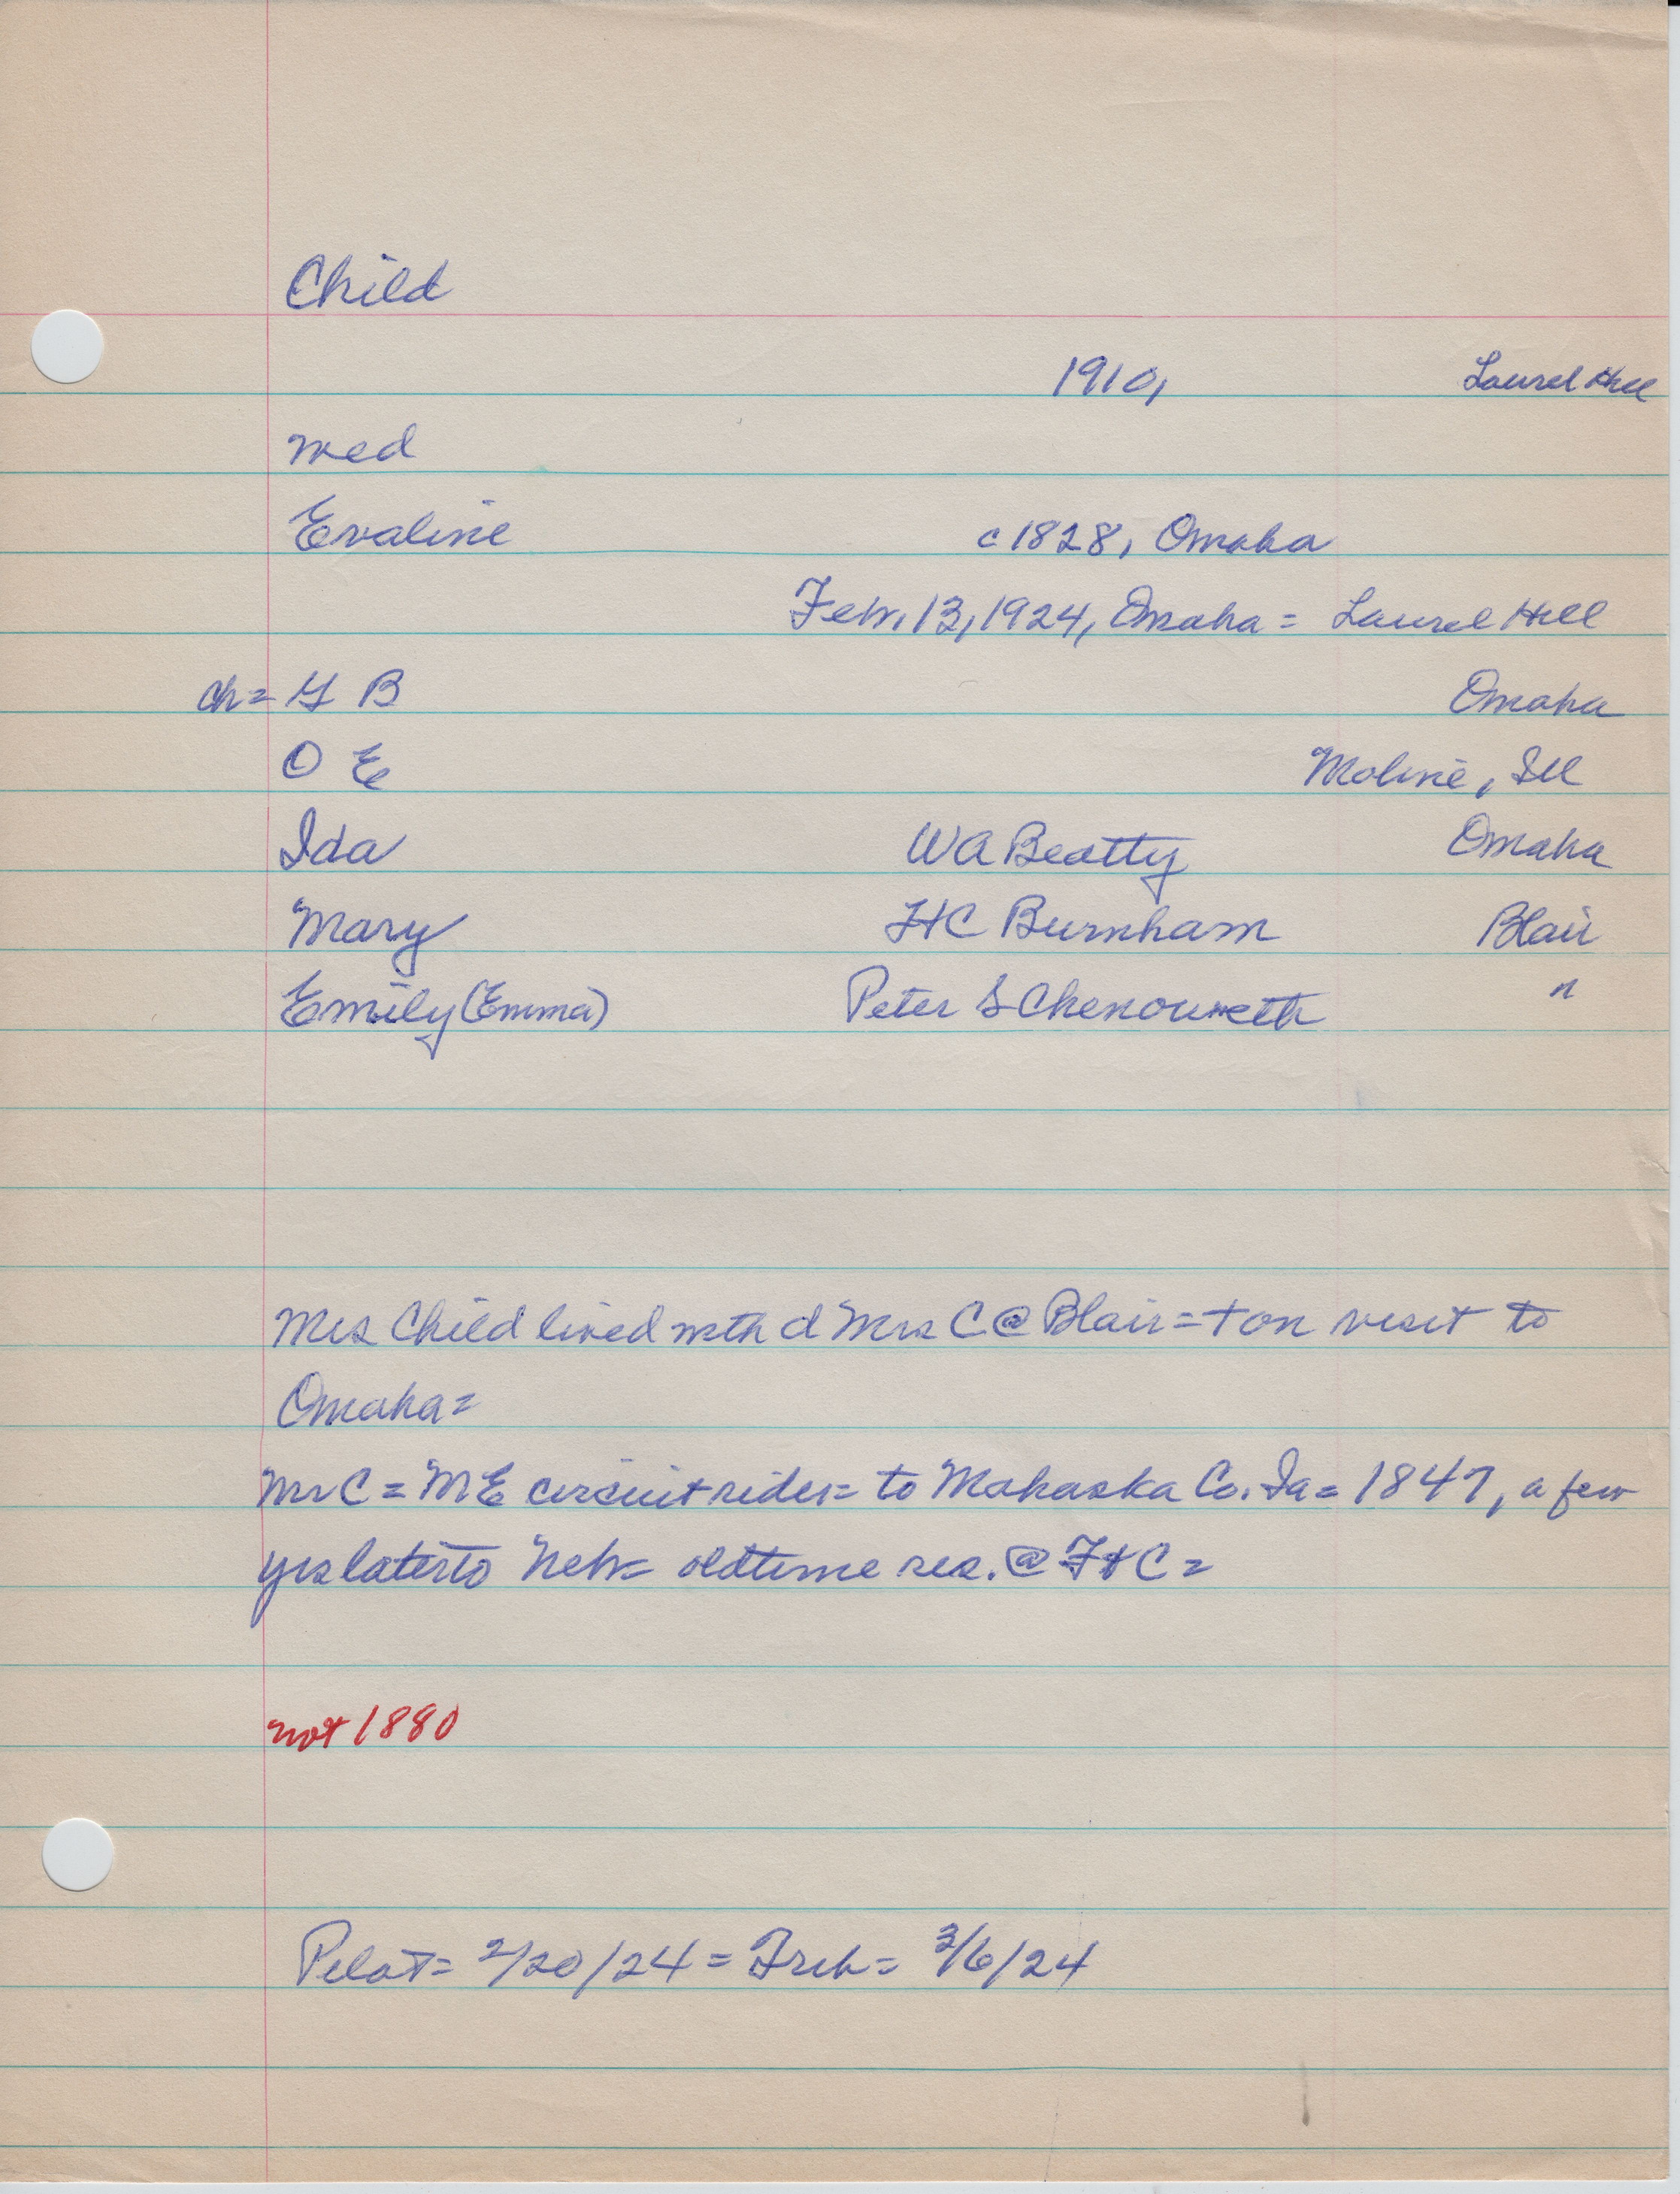 Child
1910, Laurel Hill
wed
Evaline c 1828, Omaha
Feb. 13, 1924, Omaha = Laurel Hill
ch = G B Omaha
O E Moline, Ill
Ida WA Beatty Omaha
Mary HC Burnham Blair
Emily (Emma) Peter S Chenoweth "
Mrs Child lived with d Mrs C @ Blair = + on visit to
Omaha =
Mr C = ME circuit rider = to Mahaska Co. Ia = 1847, a few
yrs later to Neb = oldtime res. @ Ft C =
not 1880
Pilot = 2/20/24 = = 3/6/24